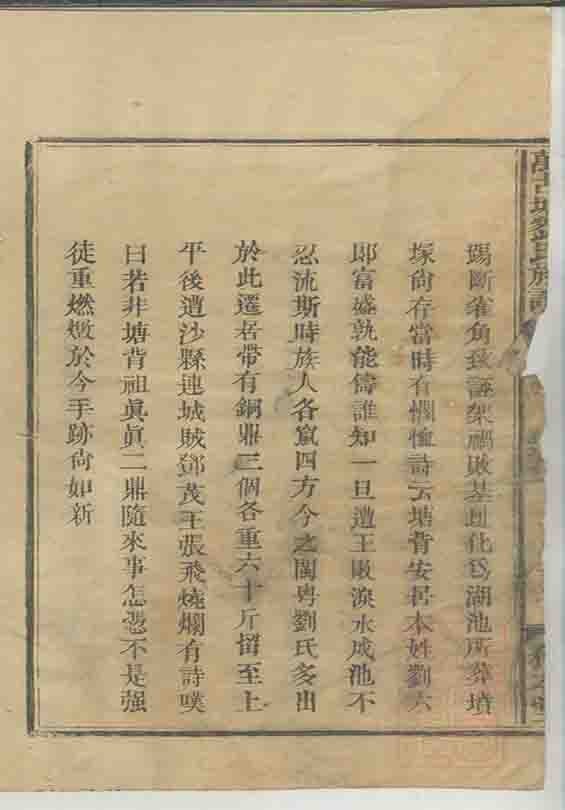 劉氏族譜
踢斷雀角致誣架禍敗基剷化爲湖池所葬墳
塚尙存當時有憪恤詩云塘背安居本姓劉六
郎富盛孰能儔誰知一旦遭王敗淚水成池不
忍流斯時族人各竄四方今之閩粤劉氏多出
於此遷居帶有銅鼎三個各重六十斤留至上
平後遭沙縣連城賊鄧茂王張飛燒爛有詩嘆
曰若非塘背祖眞眞二鼎隨來事怎憑不是强
徒重燃燬於今手跡尙如新